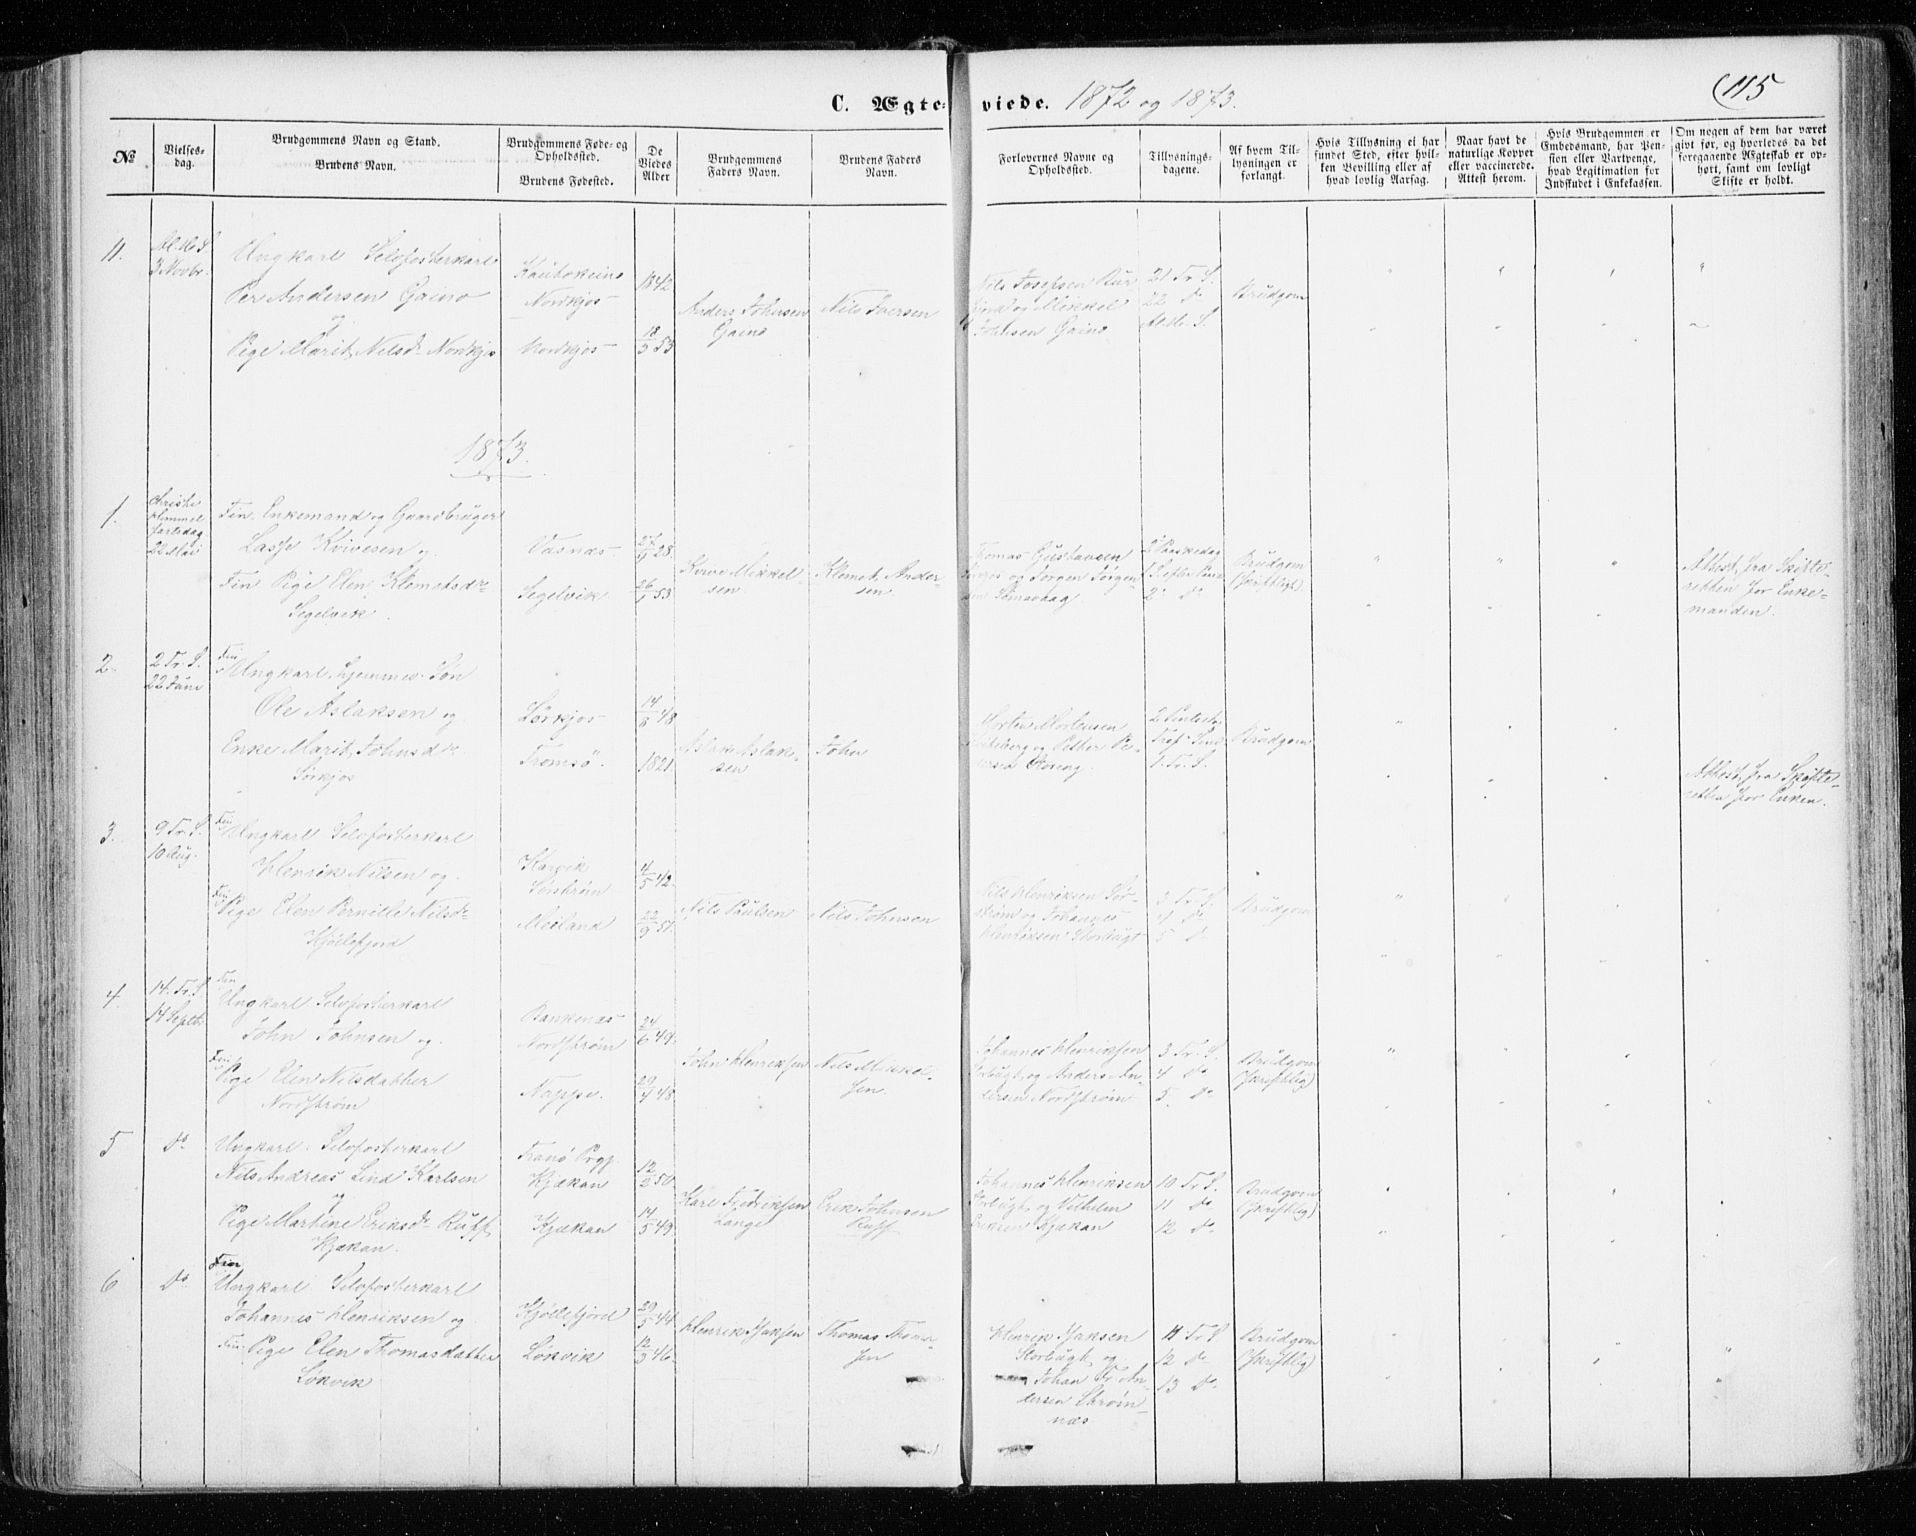 C. Ægte-viede. 1872 og 1873.
115
No
Vielses-
dag.
Brudgommens Navn og Stand.
Brudens Navn.
Brudgommens Føde- og
Opholdssted.
Brudens Fødested.
De
Viedes
Alder
Brudgommens
Faders Navn.
Brudens Faders
Navn.
Forlovernes Navne og
Opholdssted.
Tillysnings-
dagene.
Af hvem Til-
lysningen er
forlangt.
Hvis Tillysning ei har
fundet Sted, efter hvil-
ken Bevilling eller af
hvad lovlig Aarsag.
Naar havt de
naturlige Kopper
eller vaccinerede.
Attest herom.
Hvis Brudgommen er
Embedsmand, har Pen-
sion eller Vartpenge,
hvad Legitimation for
Indskudet i Enkekassen.
Om nogen af dem har været
givt før, og hvorledes da det
foregaaende Ægteskab er op-
hørt, samt om lovligt
Skifte er holdt.
11.
3 Novbr.
Ungkarl Selvfosterkarl
Per Andersen Gaino
og
Pige Marit Nilsdr Nordkjos
Kautokeino
Nordkjos
Nordkjos
1842
18/9 53
Anders Johnsen
Gaino
Nils Iversen
Nils Josefsen
og Mikkel
Johnsen Gaino
21 Tr. S.
22 do
Al. H. S.
Brudgom
1873.
1.
Christi
Himmel
fartsdag
22 Mai
Fin. Enkemand og Gaardbruger
Lasse Kvivesen og
Fin Pige Elen Klemetsdr
Segelvik.
Vasnæs
Segelvik
27/9 28.
26/1 53
Kvive Mikkel-
sen
Klemet Ander-
sen
Thomas Gustavsen
og Jørgen Jørgen-
sen
2 Paaskedag
1 S. efter Paas
2 do
Brudgom
(skriftligt)
Attest fra Skifte-
retten for Enke-
manden.
2.
2 Tr. S.
22 Juni
Fin
Ungkarl, hjemmev. Søn
Ole Aslaksen og
Enke Marit Johnsdr
Sørkjos
Sørkjos
Tromsø.
14/8 48
1821.
Aslak Aslak-
sen
John
Morten Mortensen
og Petter Pe-
1. Tr. S.
Brudgom
Attest fra Skifte-
retten for Enken.
3.
9 Tr. S.
10 Aug.
Fin
Ungkarl Selvfosterkarl
Henrik Nilsen og
Fin
Pige Elen Pernille Nilsdr
Kjøllefjord
Karvik
Sørstrøm
Meiland
4/5 42.
22/9 51.
Nils Paulsen
Nils Johnsen
Nils Henriksen Sør-
strøm og Johannes
Henriksen Storbugt
3 Tr. S.
4 do
5 do
Brudgom
4.
14. Tr. S
14 Septbr
Fin
Ungkarl Selvfosterkarl
John Johnsen og
Fin
Pige Elen Nilsdatter
Nordstrøm
Bankenæs
Nordstrøm
Nappe.
24/6 49.
29/4 48
John Henriksen
Nils Mikkel-
sen.
Johannes Henriksen
Storbugt, og Anders An-
dersen Nordstrøm
3 Tr. S.
4 do
5. do
Brudgom
(skriftlig)
5
Do
Ungkarl. Selvfosterkarl
Nils Andreas Lind Karlsen
og
Pige Martine Eriksdr Ruff
Kjækan.
Tranø Prgj.
Kjækan
Kjækan
12/2 50
14/5 49.
Karl Fredriksen
Lange
Erik Johnsen
Ruff
Johannes Henriksen
Storbugt og Vilhelm
Eriksen Kjækan
10 Tr S.
11 do
12 do
Brudgom
(skriftlig)
6
Do
Fin
Ungkarl Selvfosterkarl
Johannes Henriksen og
Fin Pige Elen Thomasdatter
Løkvik
Kjøllefjord
Løkvik
29/5 44
12/9 46.
Henrik Isaksen
Thomas Thoma-
sen
Henrik Isaksen
Storbugt, og
Johan Fr. An-
dersen Strøm-
næs
11 Tr S
12 do
13 do
Brudgom
(skriftlig)